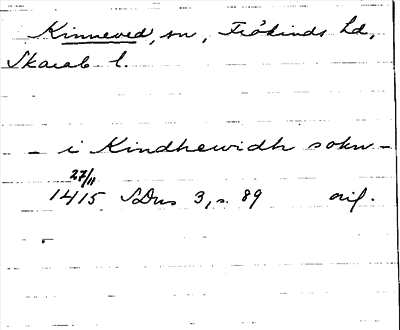 Kinneved, sn, Frökinds hd,
Skarab l.
- i Kindhewidh sokn -
27/11
1415 SDns 3, s. 89 orig.